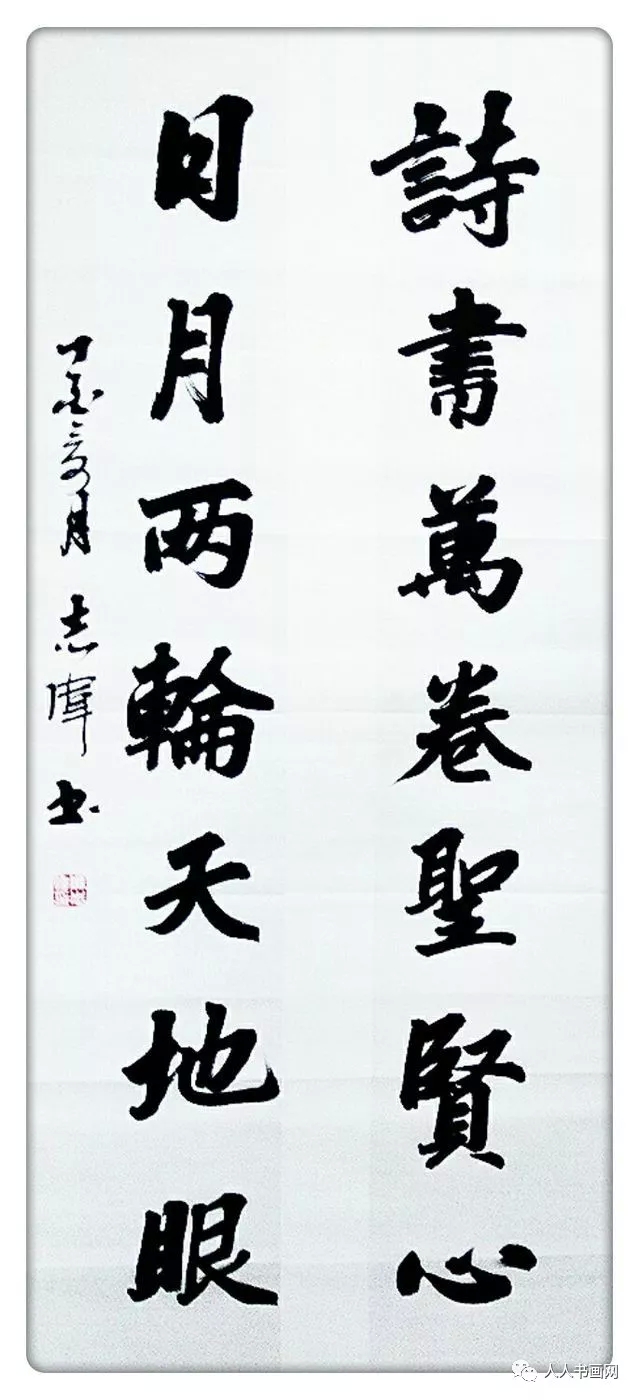 詩書萬卷聖賢心
日月两輪天地眼
丁酉之夏月 志偉书
人人书画网